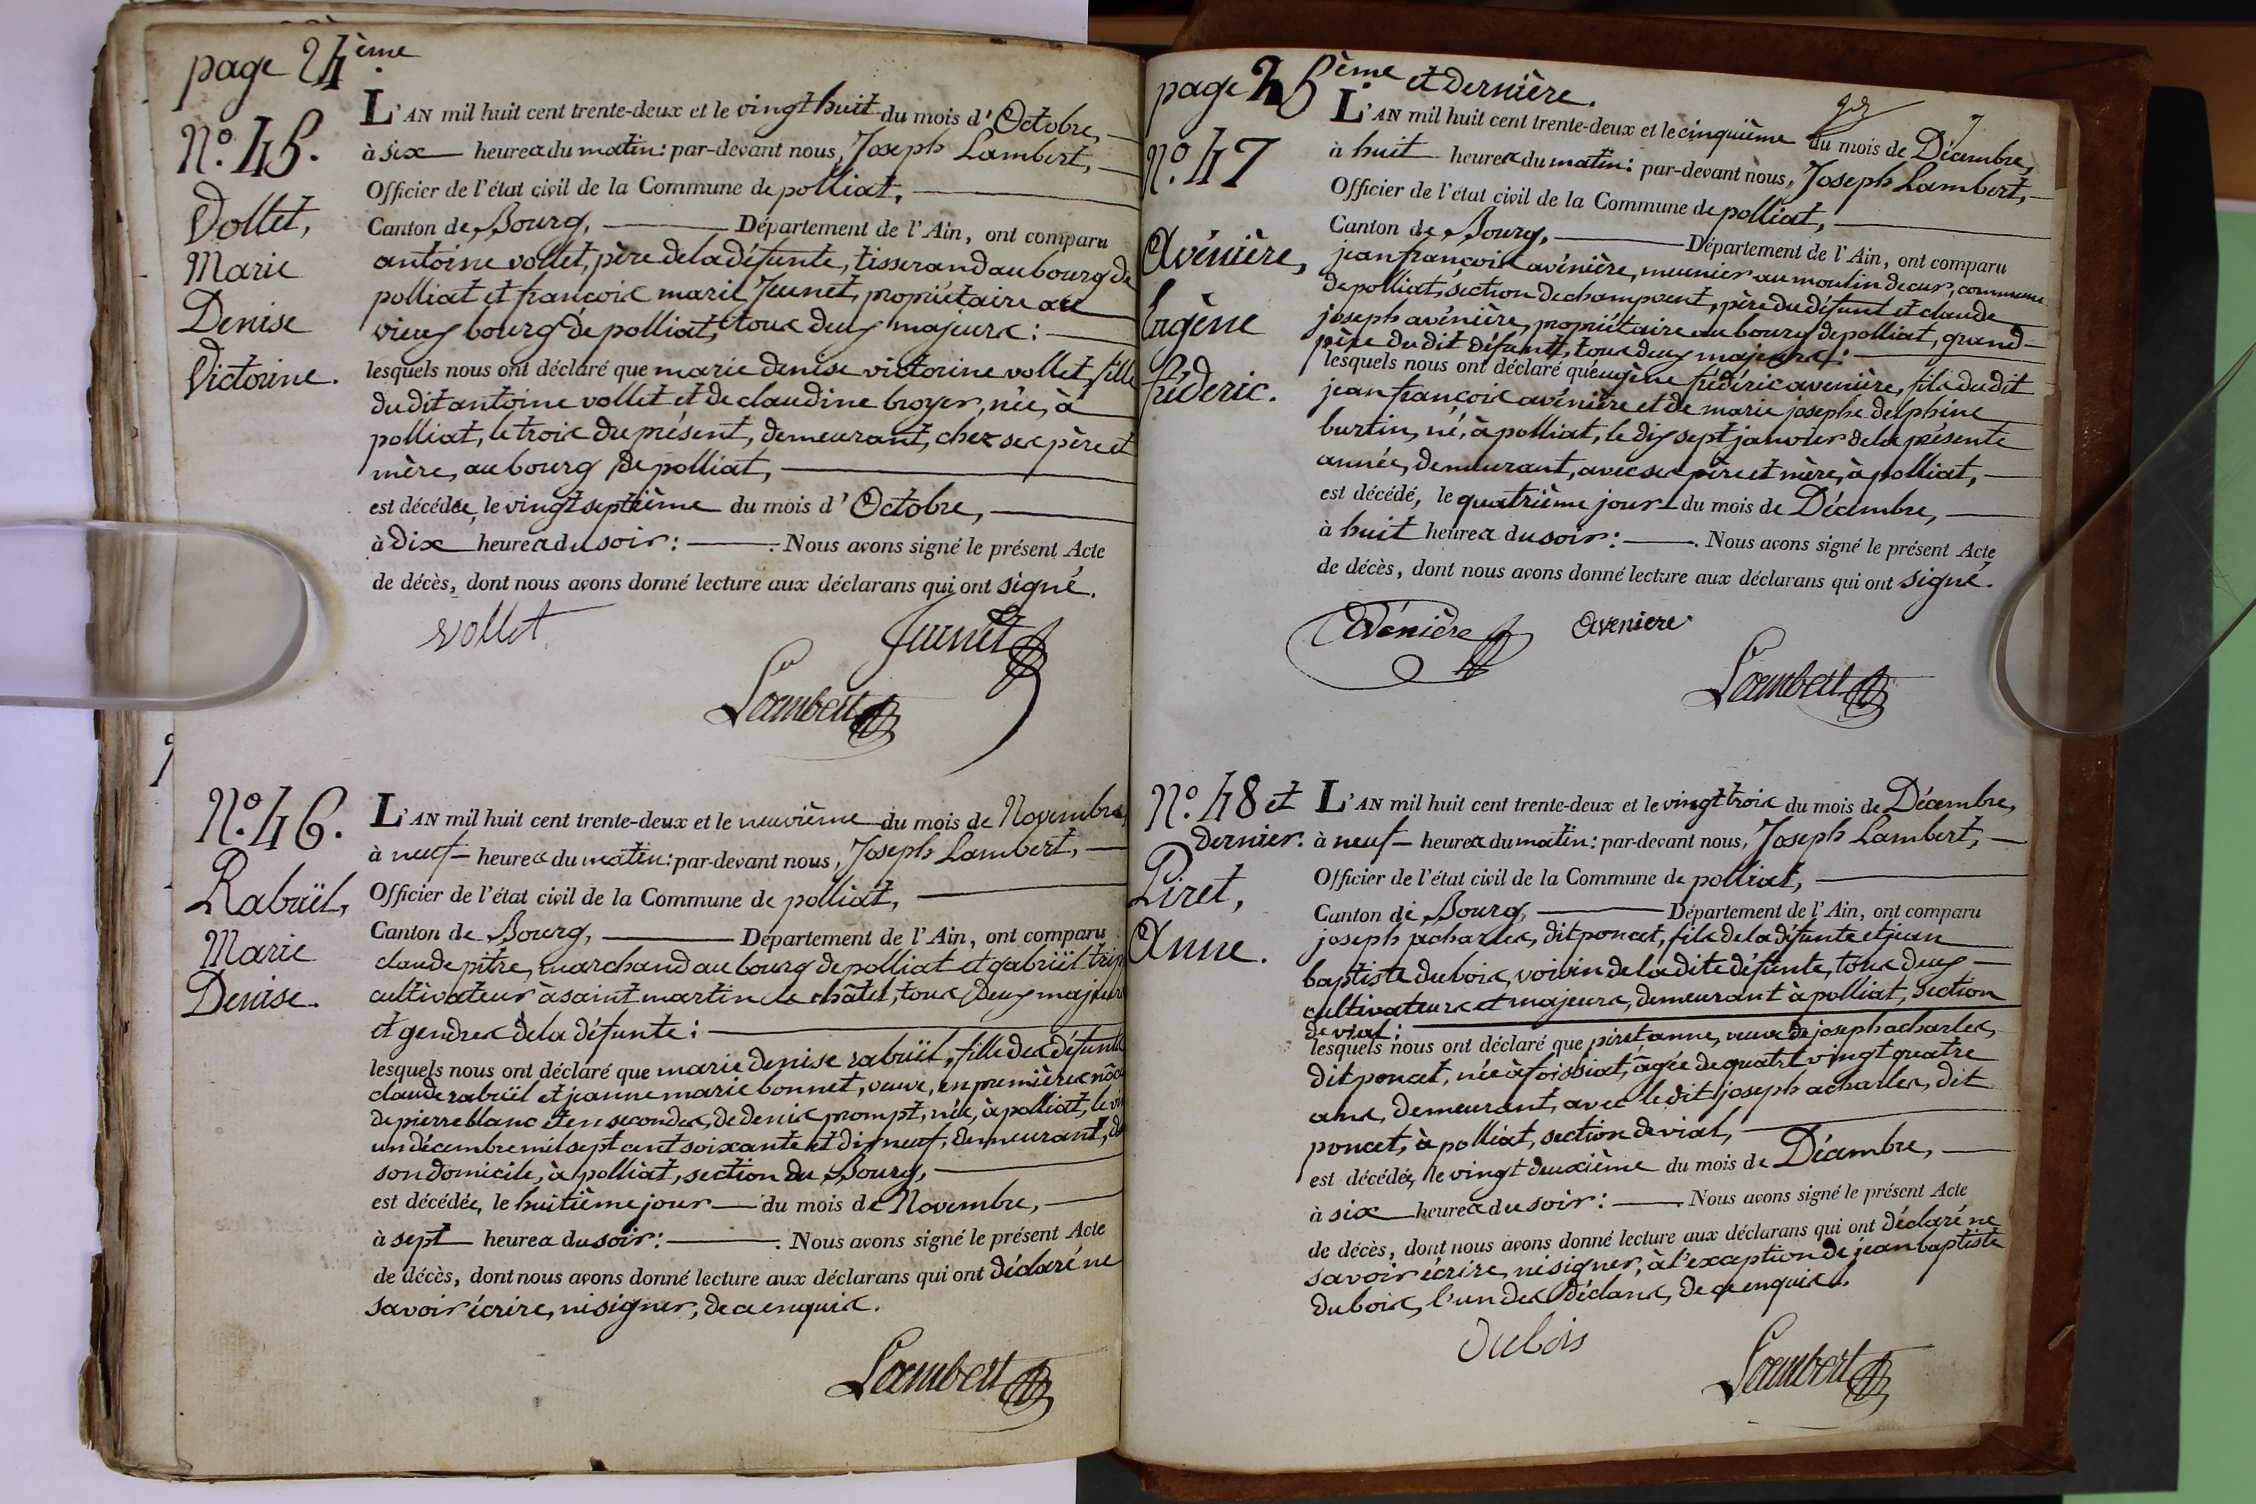 page 24ème
N.º 45.
Vollet,
Marie
Denise
Victorine.
L'AN mil huit cent trente-deux et le vingt huit du mois d'Octobre,
à six heures du matin: par-devant nous, Joseph Lambert,
Officier de l'état civil de la Commune de polliat,
Canton de Bourg, Département de l'Ain, ont comparu
antoine vollet, père de la défunte, tisserand au bourg de
polliat et françois marie Jeunet, propriétaire au
vieux bourg de polliat, tous deux majeurs:
lesquels nous ont déclaré que marie denise victorine vollet, fille
du dit antoine vollet et de claudine broyer, née, à
polliat, le trois du présent, demeurant, chez ses père et
mère, au bourg de polliat,
est décédée, le vingt septième du mois d'Octobre,
à dix heures du soir: Nous avons signé le présent Acte
de décès, dont nous avons donné lecture aux déclarans qui ont signé.
vollet
Jeunet
Lambert
N.º 46.
Rabuël,
Marie
Denise.
L'AN mil huit cent trente-deux et le neuvième du mois de Novembre,
à neuf heures du matin: par-devant nous, Joseph Lambert,
Officier de l'état civil de la Commune de polliat,
Canton de Bourg, Département de l'Ain, ont comparu
claude pitre, marchand au bourg de polliat et gabriël
cultivateur à saint martin le châtel, tous deux majeurs
et gendres de la défunte:
lesquels nous ont déclaré que marie denise rabuël, fille des défunts
claude rabuël et jeanne marie bonnet, veuve, en premières
de pierre blanc et en secondes, de denis prompt, née, à polliat, le
un décembre mil sept cent soixante et dix neuf, demeurant,
son domicile, à polliat, section du Bourg,
est décédée, le huitième jour du mois de Novembre,
à sept heures du soir: Nous avons signé le présent Acte
de décès, dont nous avons donné lecture aux déclarans qui ont déclaré ne
savoir écrire, ni signer, de ce enquis.
Lambert
page 25ème et dernière.
N.º 47
Avénière,
Eugène
fréderic.
L'AN mil huit cent trente-deux et le cinquième du mois de Décembre,
à huit heures du matin: par-devant nous, Joseph Lambert,
Officier de l'état civil de la Commune de polliat,
Canton de Bourg, Département de l'Ain, ont comparu
jean françois avénière, meunier au moulin de cur, commune
de polliat, section de champvent, père du défunt et claude
joseph avénière, propriétaire au bourg de polliat, grand-
père du dit défunt, tous deux majeurs:
lesquels nous ont déclaré que eugène frédéric avenière, fils du dit
jean françois avénière et de marie josephe delphine
burtin, né, à polliat, le dix sept janvier de la présente
année, demeurant, avec ses père et mère, à polliat,
est décédé, le quatrième jour du mois de Décembre,
à huit heures du soir: Nous avons signé le présent Acte
de décès, dont nous avons donné lecture aux déclarans qui ont signé.
Avénière
aveniere
Lambert
N.º 48 et
dernier.
Piret,
Anne.
L'AN mil huit cent trente-deux et le vingt trois du mois de Décembre,
à neuf heures du matin: par-devant nous, Joseph Lambert,
Officier de l'état civil de la Commune de polliat,
Canton de Bourg, Département de l'Ain, ont comparu
joseph acharles, dit poncet, fils de la défunte et jean
baptiste dubois, voisin de la dite défunte, tous deux
cultivateurs et majeurs, demeurant à polliat, section
de vial:
lesquels nous ont déclaré que piret anne, veuve de joseph acharles,
dit poncet, née à foissiat, âgée de quatre vingt quatre
ans, demeurant, avec le dit joseph acharles, dit
poncet, à polliat, section de vial,
est décédée, le vingt deuxième du mois de Décembre,
à six heures du soir: Nous avons signé le présent Acte
de décès, dont nous avons donné lecture aux déclarans qui ont déclaré ne
savoir écrire, ni signer, à l'exception de jean baptiste
dubois, l'un des déclans, de ce enquis.
Dubois
Lambert